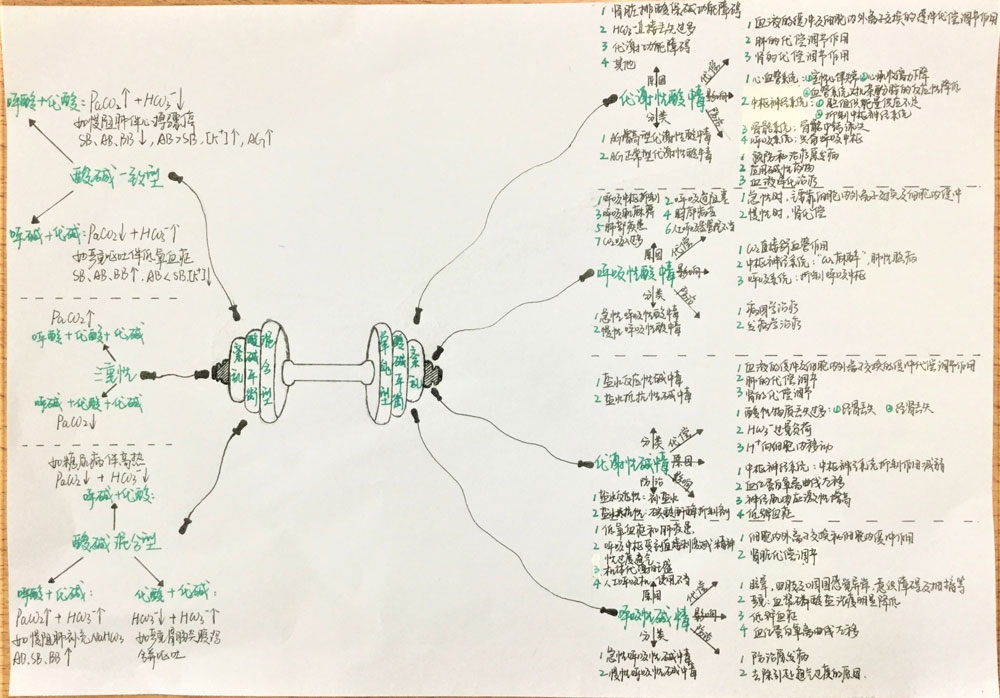 呼酸+代酸:PaCO₂↑+HCO₃⁻↓
如慢阻肺伴心搏骤停
SB、AB、BB↓,AB>SB,[K⁺]↑,AG↑
酸碱一致型
呼碱+代碱:PaCO₂↓+HCO₃⁻↑
SB、AB、BB↑,AB<SB,[K⁺]↓
PaCO₂↑
呼酸+代酸+代碱
三重性
呼碱+代酸+代碱
PaCO₂↓
如糖尿病伴高热
PaCO₂↓+HCO₃⁻↓
呼碱+代酸:
酸碱混合型
呼酸+代碱:
PaCO₂↑+HCO₃⁻↑
如慢阻肺补充NaHCO₃
AB、SB、BB↑
代酸+代碱:
HCO₃⁻↓+HCO₃⁻↑
合并呕吐
混合型
酸碱平衡
紊乱
单纯型
酸碱平衡
紊乱
1 肾脏排酸保碱功能障碍
2 HCO₃⁻直接丢失过多
3 代谢功能障碍
4 其他
原因
代偿
代谢性酸中毒
影响
分类
防治
1 AG增高型代谢性酸中毒
2 AG正常型代谢性酸中毒
1 血液的缓冲及细胞内外离子交换的缓冲代偿调节作用
2 肺的代偿调节作用
3 肾的代偿调节作用
1 心血管系统:①室性心律失常②心肌收缩力下降
③血管系统对儿茶酚胺的反应性降低
2 中枢神经系统:①脑组织能量供应不足
②抑制中枢神经系统
3 骨骼系统:骨骼中钙流失
4 呼吸系统:兴奋呼吸中枢
1 预防和治疗原发病
2 应用碱性药物
3 血液净化治疗
1 呼吸中枢抑制 2 呼吸道阻塞
3 呼吸肌麻痹 4 胸部病变
5 肺部疾患 6 人工呼吸器管理不当
7 CO₂吸入过多
原因
代偿
呼吸性酸中毒
影响
分类
防治
1 急性呼吸性酸中毒
2 慢性呼吸性酸中毒
1 急性时,主要靠细胞内外离子交换及细胞内缓冲
2 慢性时,肾代偿
1 CO₂直接舒血管作用
2 中枢神经系统:“CO₂麻醉”,肺性脑病
3 呼吸系统:抑制呼吸中枢
1 病因学治疗
2 发病学治疗
1 盐水反应性碱中毒
2 盐水抵抗性碱中毒
分类
代偿
代谢性碱中毒
原因
防治
影响
1 盐水反应性:补盐水
2 盐水抵抗性:碳酸酐酶抑制剂
1 血液的缓冲及细胞内外离子交换的缓冲代偿调节作用
2 肺的代偿调节
3 肾的代偿调节
1 酸性物质丢失过多:①经胃丢失 ②经肾丢失
2 HCO₃⁻过量负荷
3 H⁺向细胞内移动
1 中枢神经系统:中枢神经系统抑制作用减弱
2 血红蛋白氧离曲线左移
3 神经肌肉应激性增高
4 低钾血症
1 低氧血症和肺疾患
2 呼吸中枢受到直接刺激或精神
性过度通气
3 机体代谢旺盛
4 人工呼吸机使用不当
原因
代偿
呼吸性碱中毒
影响
分类
防治
1 急性呼吸性碱中毒
2 慢性呼吸性碱中毒
1 细胞内外离子交换和细胞内缓冲作用
2 肾脏代偿调节
1 眩晕,四肢及口周围感觉异常,意识障碍及抽搐等
3 低钾血症
4 血红蛋白氧离曲线左移
1 防治原发病
2 去除引起通气过度的原因